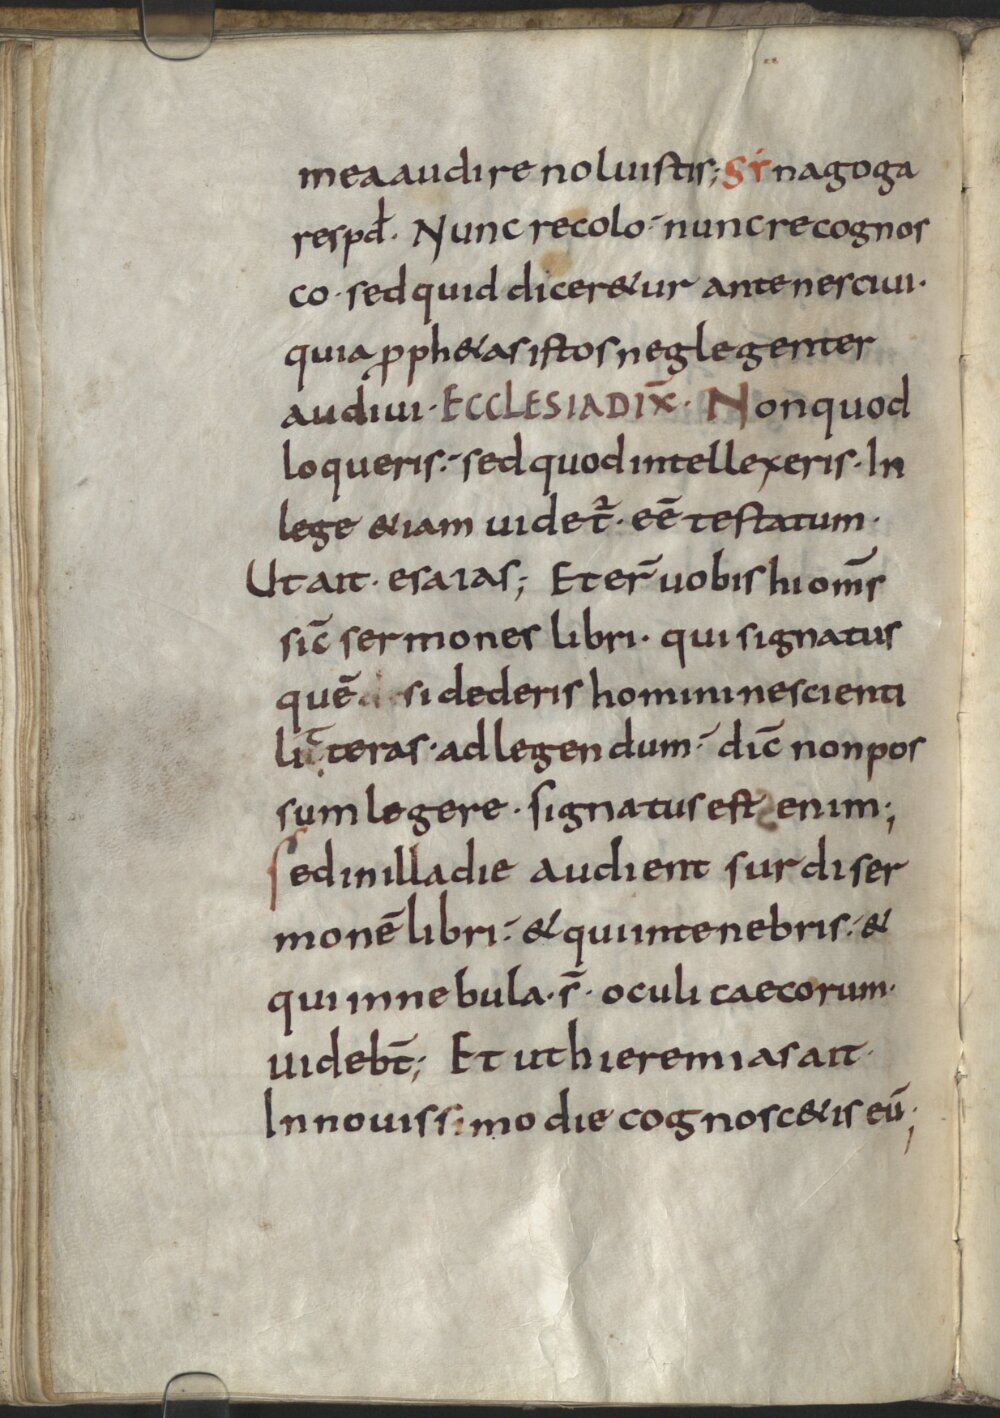 mea audire noluistis; Sinagoga
respd̄. Nunc recolo nunc recognos
co. sed quid diceretur ante nesciui.
quia ꝓphetas istos neglegenter
audiui. ECCLESIA DIX̄. Non quod
loqueris. sed quod intellexeris. In
lege etiam uidet̄. eē testatum.
Ut ait. esaias; Et er̄ uobis hi om̄s
sic̄ sermones libri. qui signatus
quē si dederis homini nescienti
litteras. ad legendum. dic̄ non pos
sum legere. signatus est enim;
Sed in illa die audient surdi ser
monē libri. & qui in tenebris. &
qui in nebula. s̄. oculi caecorum.
uideb̄t; Et ut hieremias ait.
In nouissimo die cognoscetis eū;